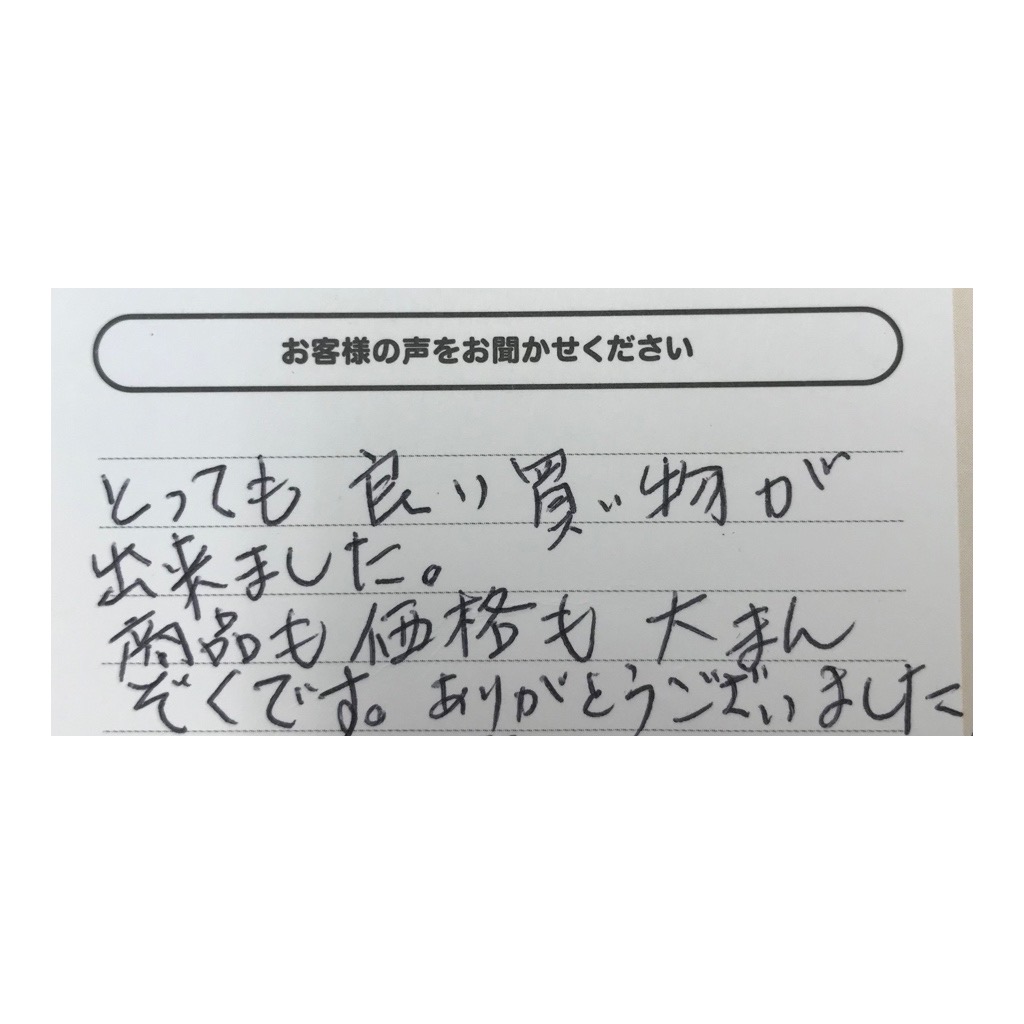 お客様の声をお聞かせください
とっても良い買い物が
出来ました。
商品も価格も大まん
ぞくです。ありがとうございました